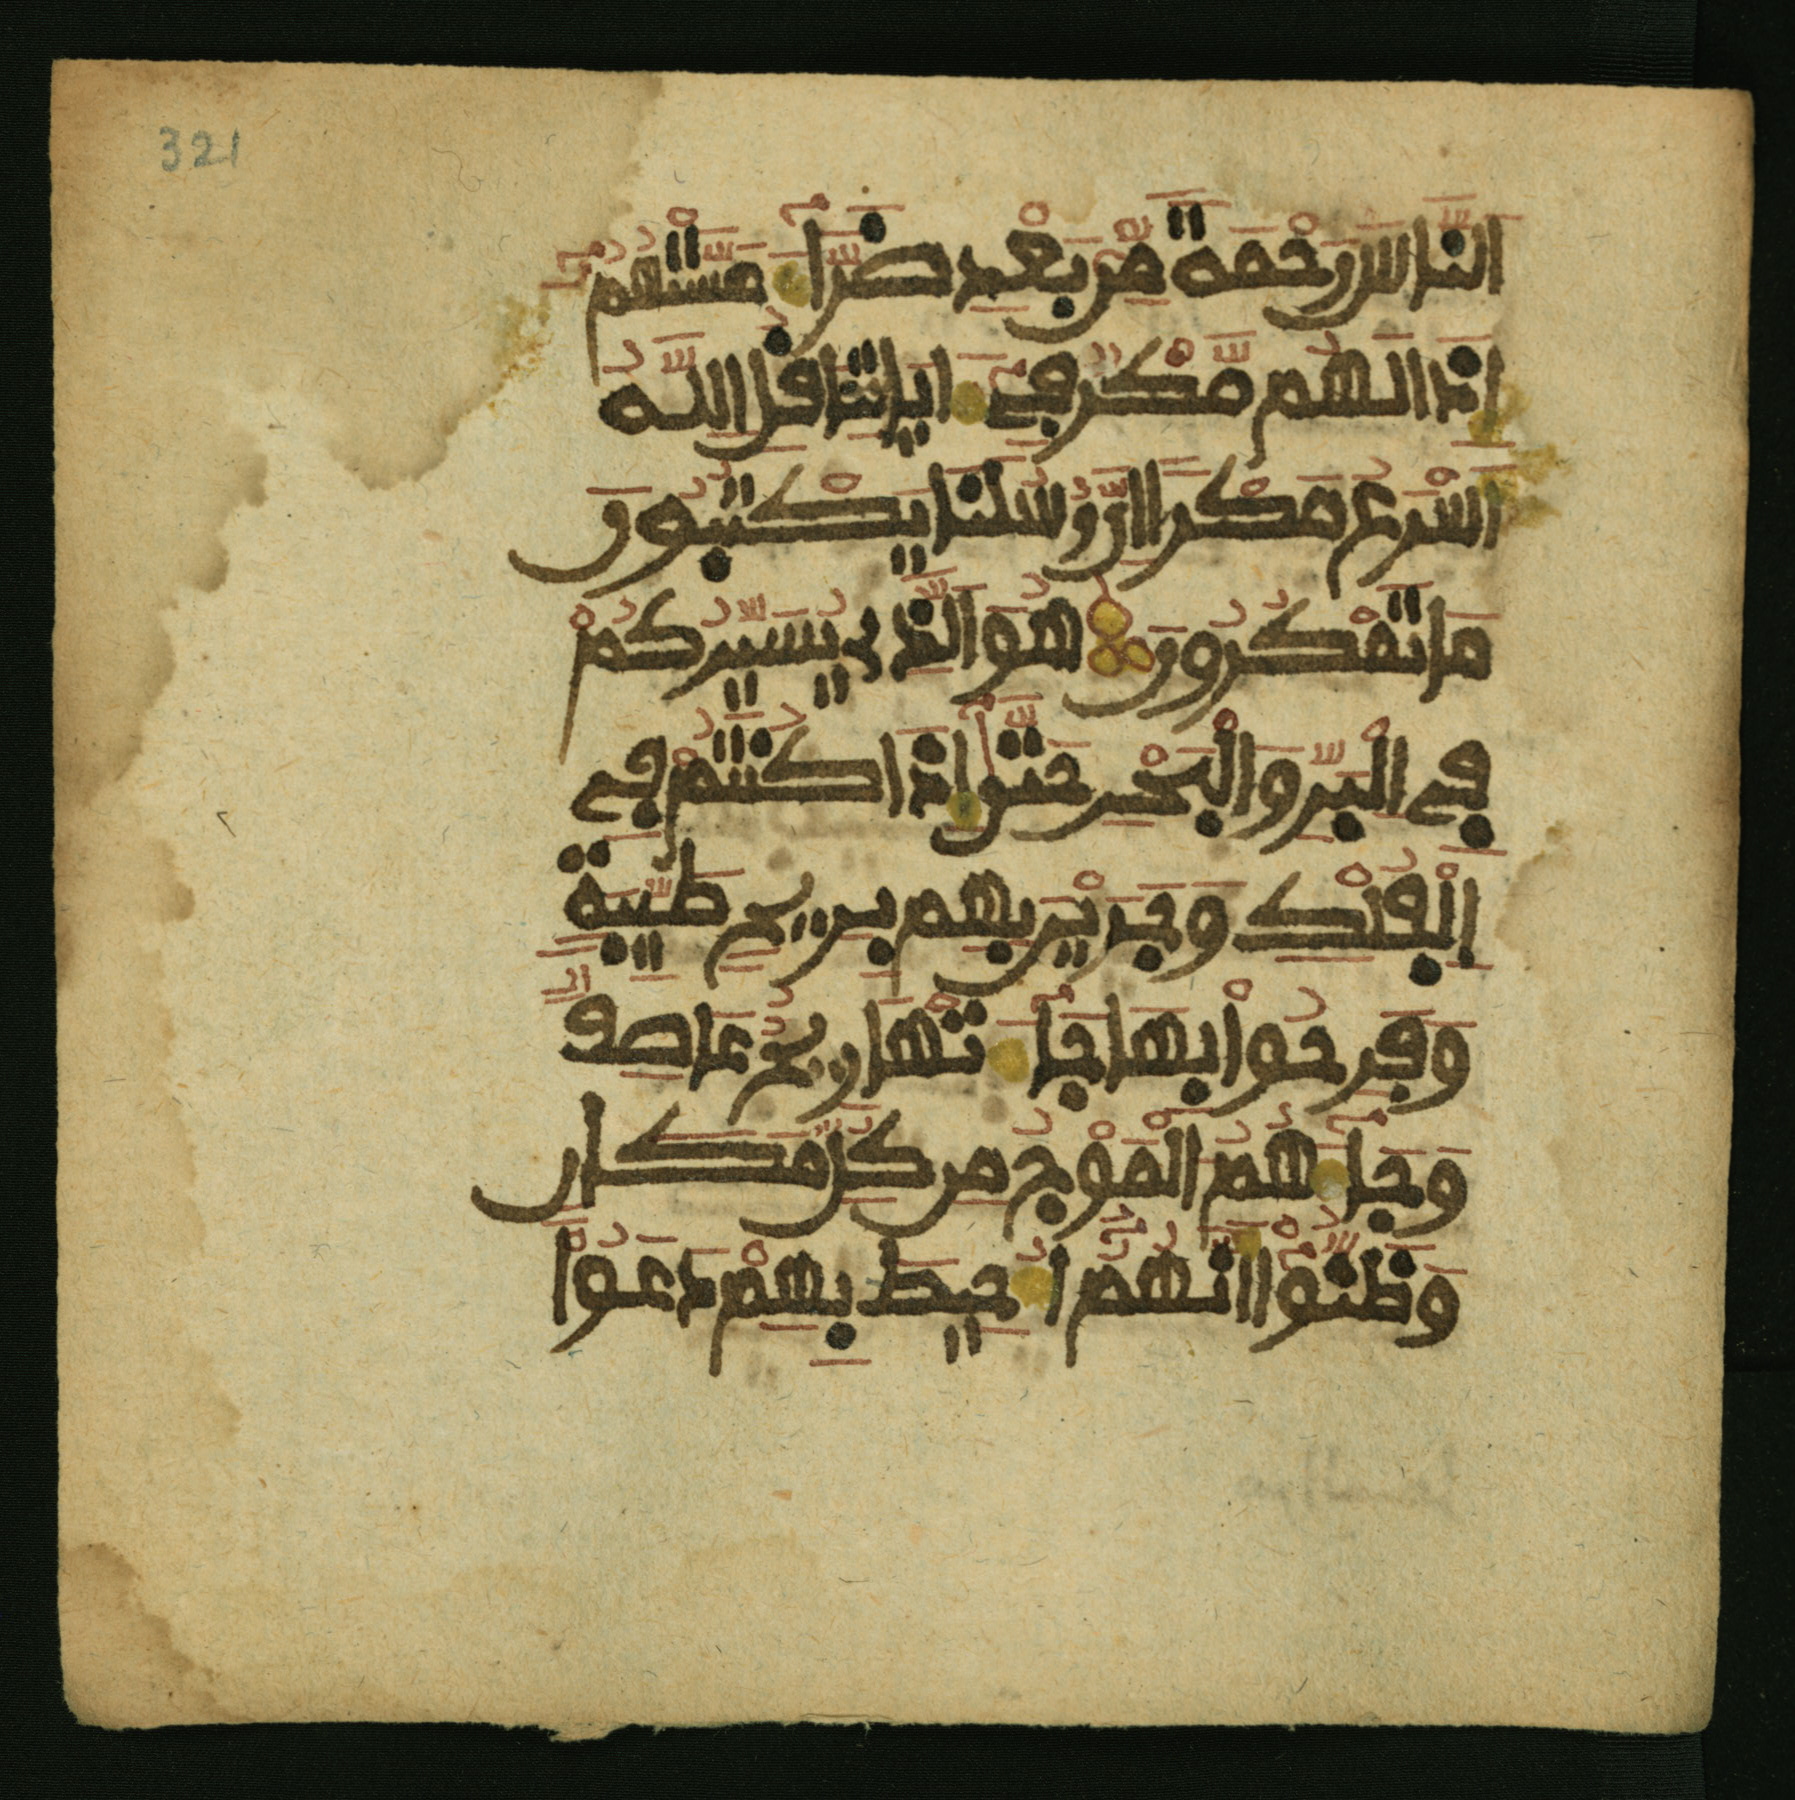 321
الناس رحمة من بعد ضرا مستهم
اذا لهم مكر في اياتنا قل الله
اسرع مكرا ان رسلنا يكتبون
ما تمكرون هو الذي يسيركم
في البر والبحر حتى اذا كنتم في
الفلك وجرين بهم بريح طيبة
وفرحوا بها جا تها ريح عاصف
وجا هم الموج من كل مكان
وظنوا انهم ا حيط بهم دعوا